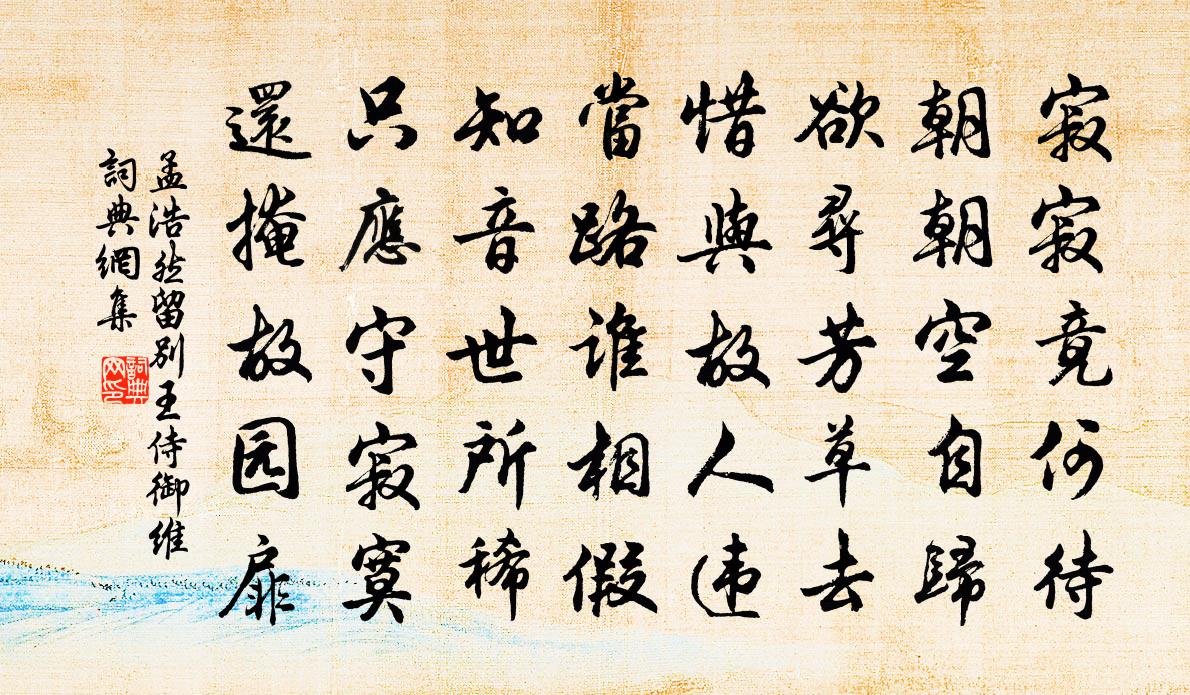 寂寂竟何待
朝朝空自歸
欲尋芳草去
惜與故人违
當路誰相假
知音世所稀
只應守寂寞
還掩故园扉
孟浩然留别王侍御维
詞典網集
詞典網印